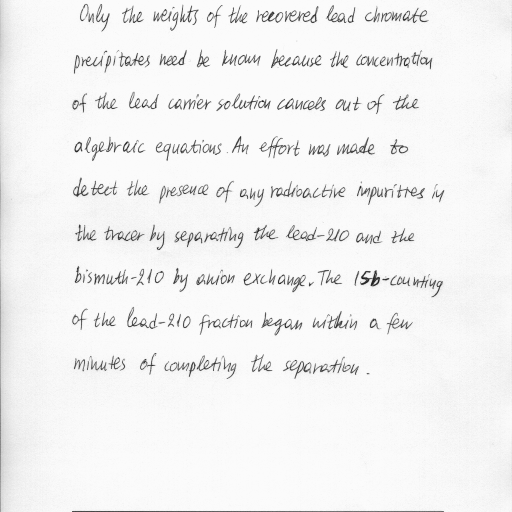 Only the weights of the recovered lead chromate
precipitates need be known because the concentration
of the lead carrier solution cancels out of the
algebraic equations. An effort was made to
detect the presence of any radioactive impurities in
the tracer by separating the lead-210 and the
bismuth-210 by anion exchange. The
of the lead-210 fraction began within a few
minutes of completing the separation.